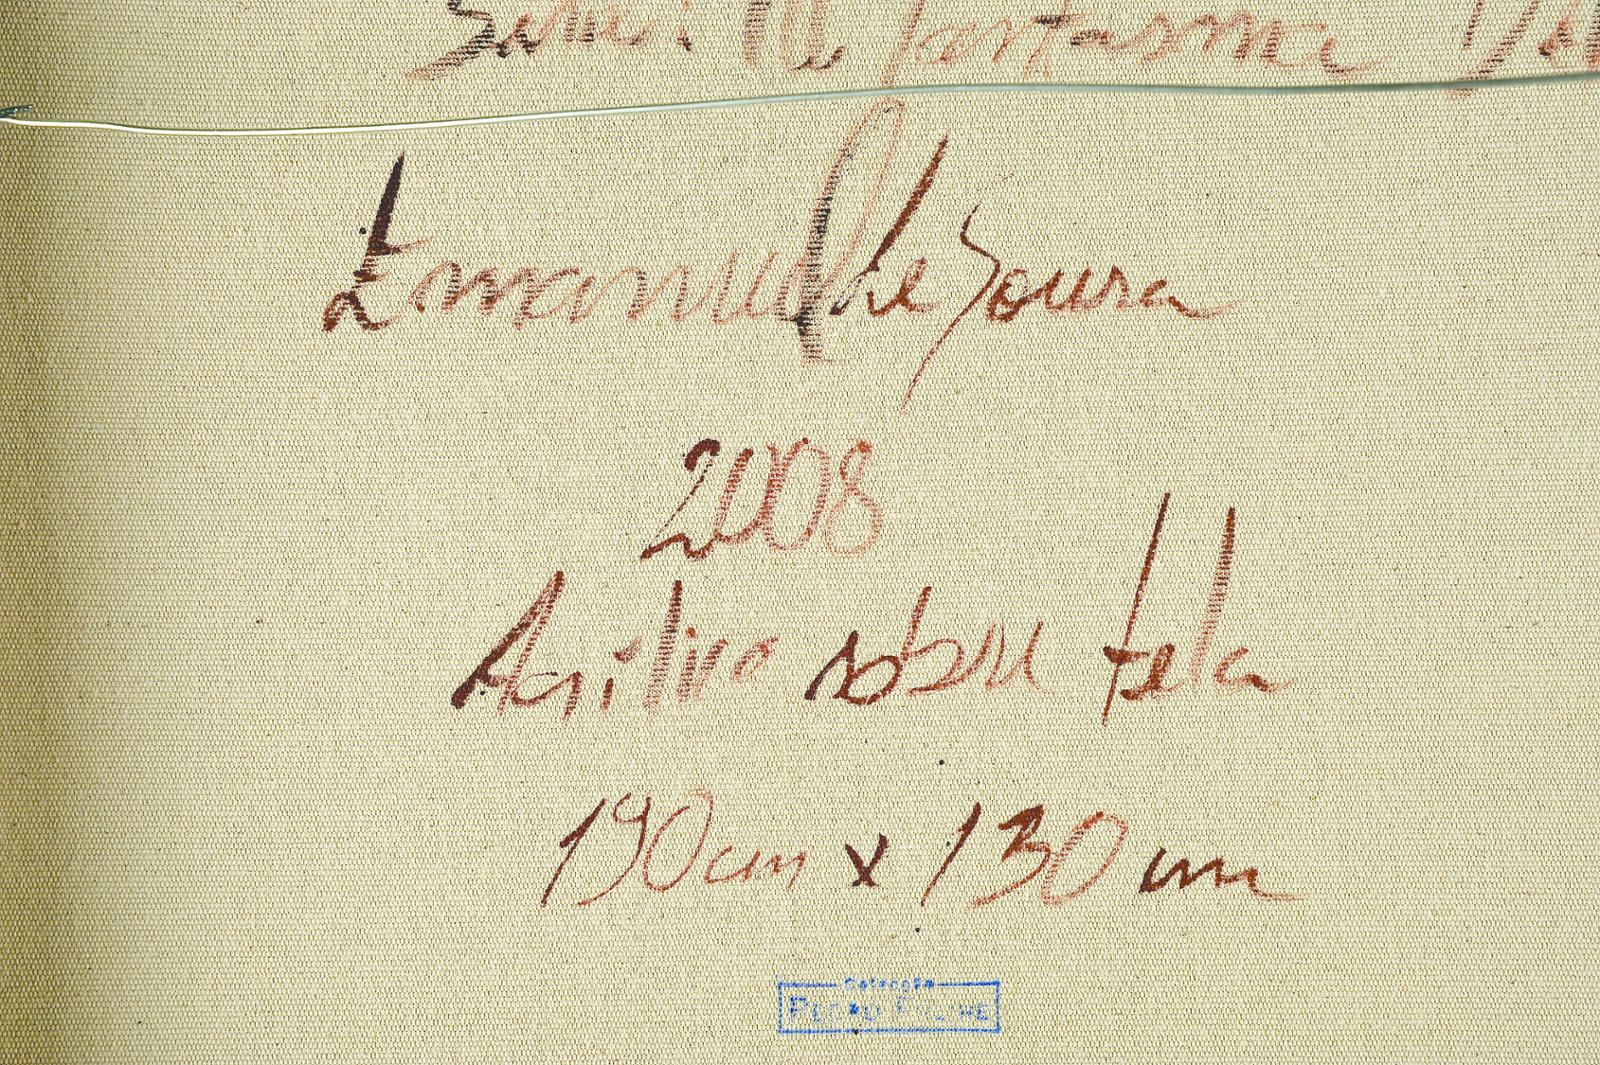 Série: O fantasma
Emanuel de Sousa
2008
Acrílico sobre tela
190cm x 130cm
Colecção
PEDRO